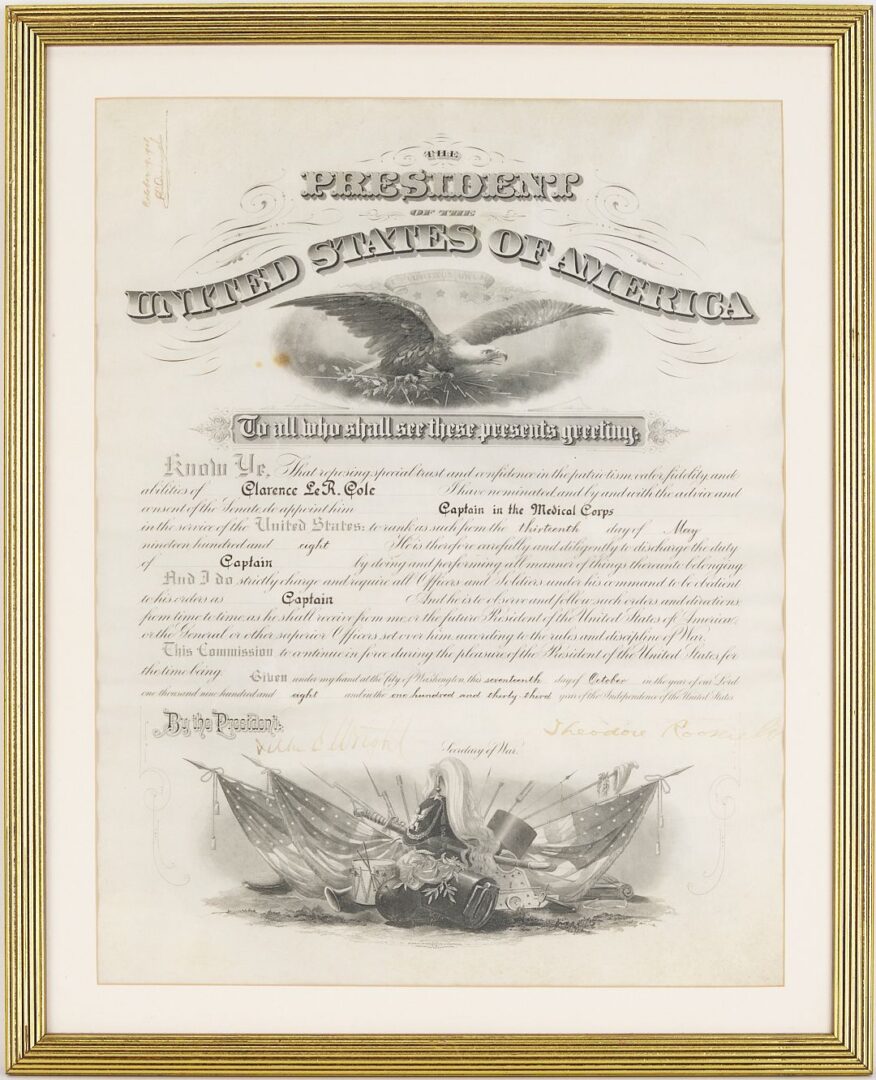 THE
PRESIDENT
OF THE
UNITED STATES OF AMERICA
To all who shall see these presents greeting:
Know Ye, That reposing special trust and confidence in the patriotism valor, fidelity and
abilities of Clarence Le R. Cole I have nominated and by and with the advice and
consent of the Senate do appoint him Captain in the Medical Corps
in the service of the United States: to rank as such from the thirteenth day of May
nineteen hundred and eight He is therefore carefully and diligently to discharge the duty
of Captain by doing and performing all manner of things thereunto belonging
And I do strictly charge and require all Officers and Soldiers under his command to be obedient
to his orders as Captain And he is to observe and follow such orders and directions,
from time to time, as he shall receive from me, or the future President of the United States of America,
or the General or other superior Officers set over him, according to the rules and discipline of War.
This Commission to continue in force during the pleasure of the President of the United States for
the time being.
Given under my hand at the City of Washington, this seventeenth day of October in the year of our Lord
one thousand nine hundred and eight and in the one hundred and thirty-third year of the Independence of the United States.
By the President:
Theodore Roosevelt
Wright
Secretary of War.